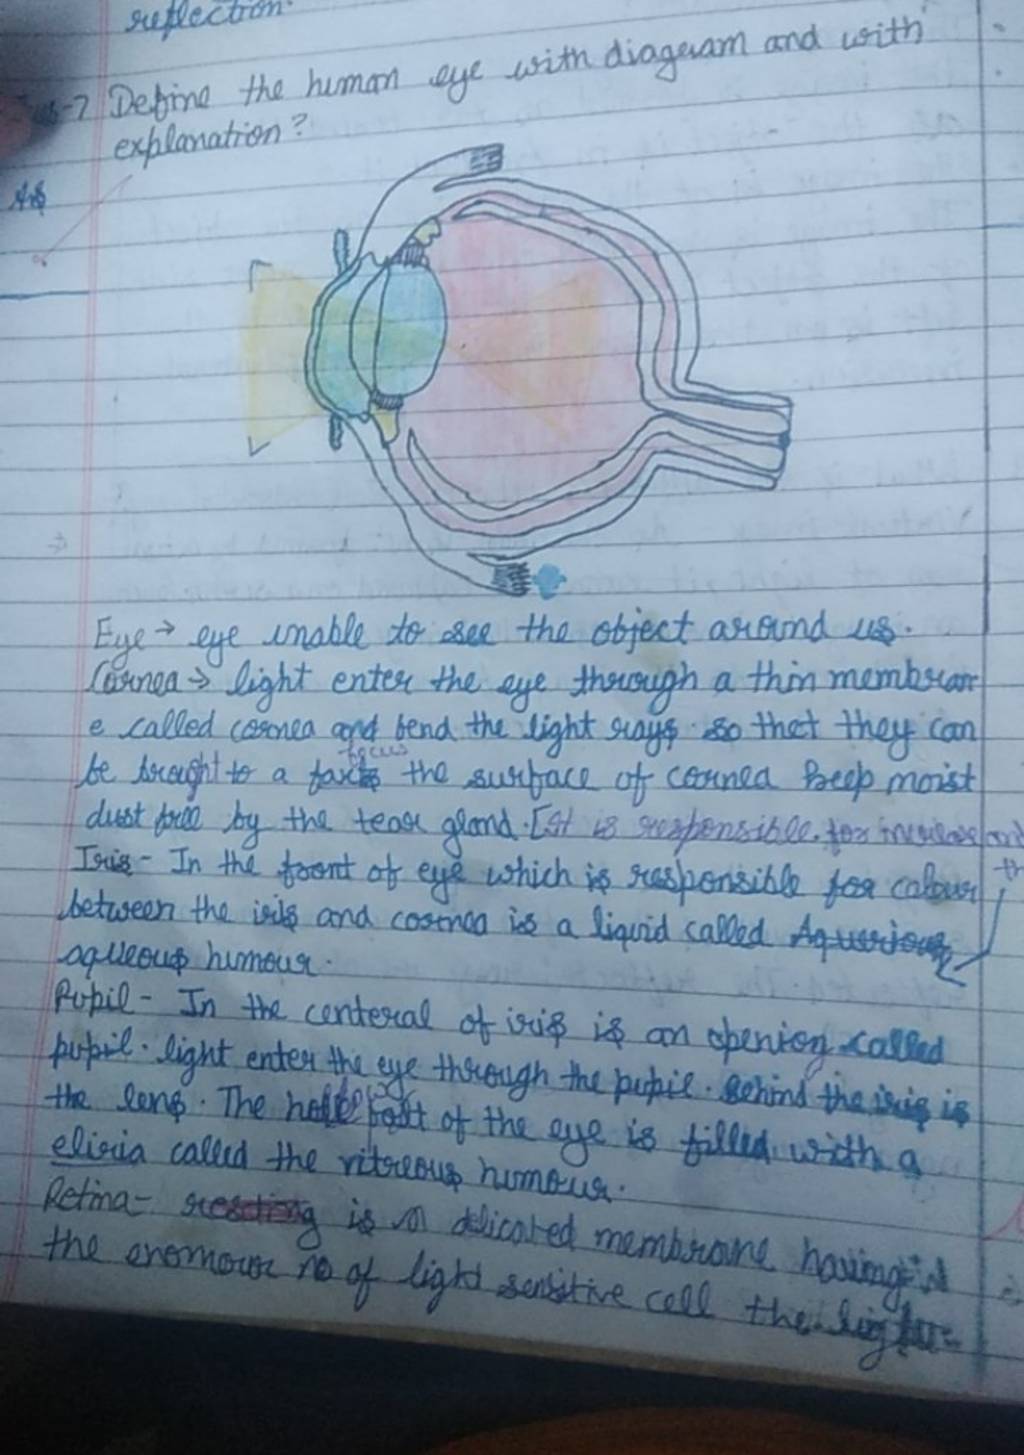 reflection.
-7 Define the human eye with diagram and with
explanation?
Ans
Eye → eye unable to see the object around us.
Cornea → light enter the eye through a thin membran
e called cornea and bend the light rays. so that they can
focus
be brought to a the surface of cornea keep moist
dust free by the tear gland. [It is responsible for increase and
Iris - In the front of eye which is responsible for colour
between the iris and cornea is a liquid called
aqueous humour.
Pupil - In the centeral of iris is an opening called
pupil. light enter the eye through the pupil. Behind the iris is
the lens. The part of the eye is filled with a
called the vitreous humour.
Retina - is a delicated membrane having
the enomour no of light sensitive cell the